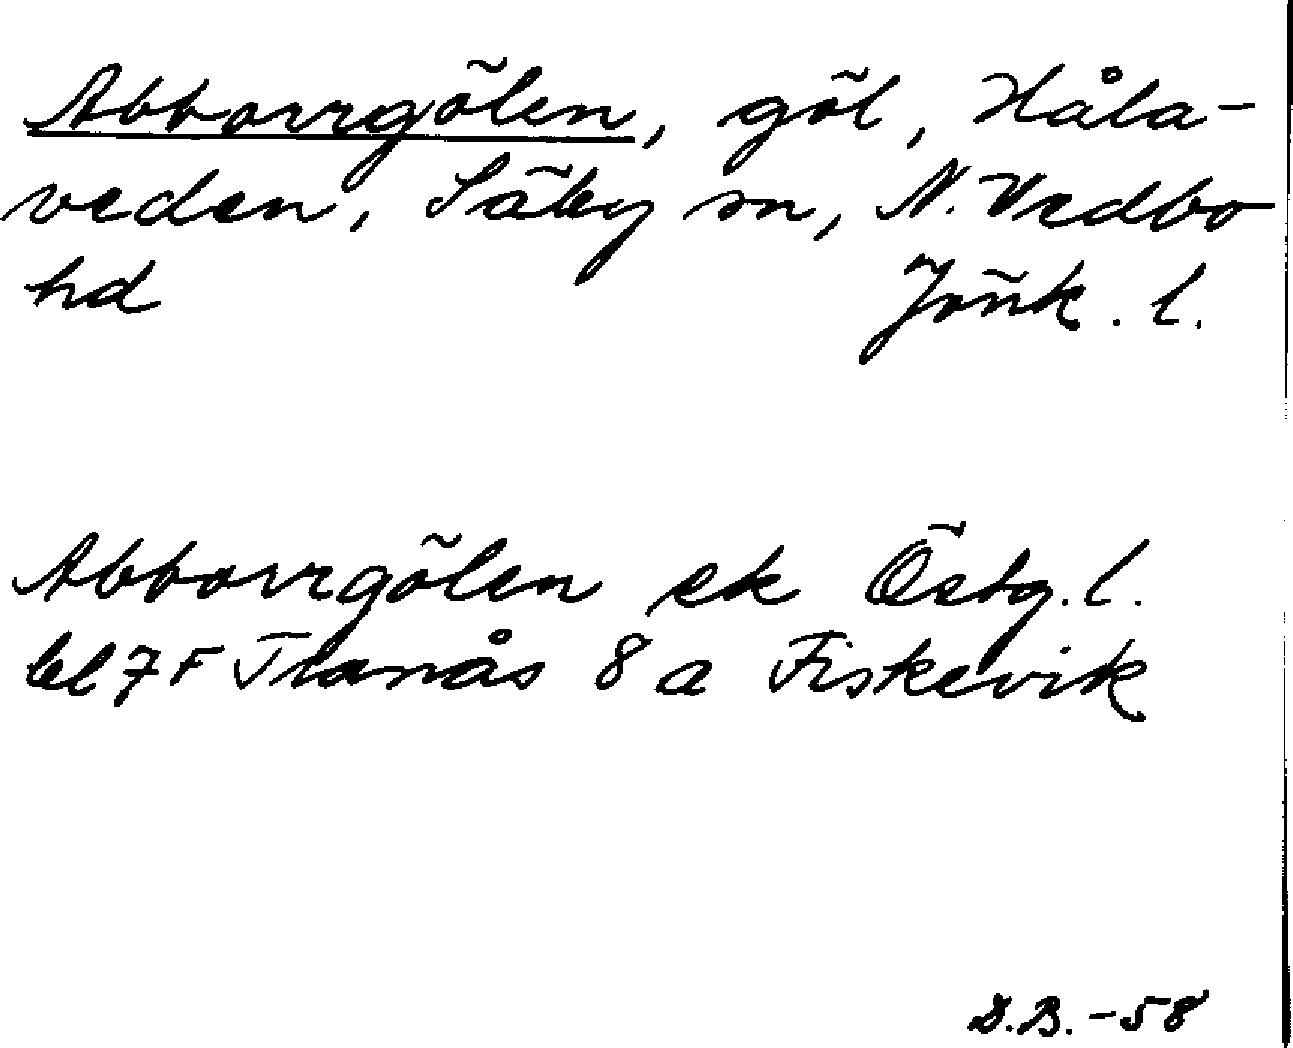 Abborrgölen, göl, Håla-
veden, Säby sn, N. Vedbo
hd Jönk. l.
Abborrgölen ek Östg. l.
bl 7F Tranås 8 a Fiskevik
D.B. -58